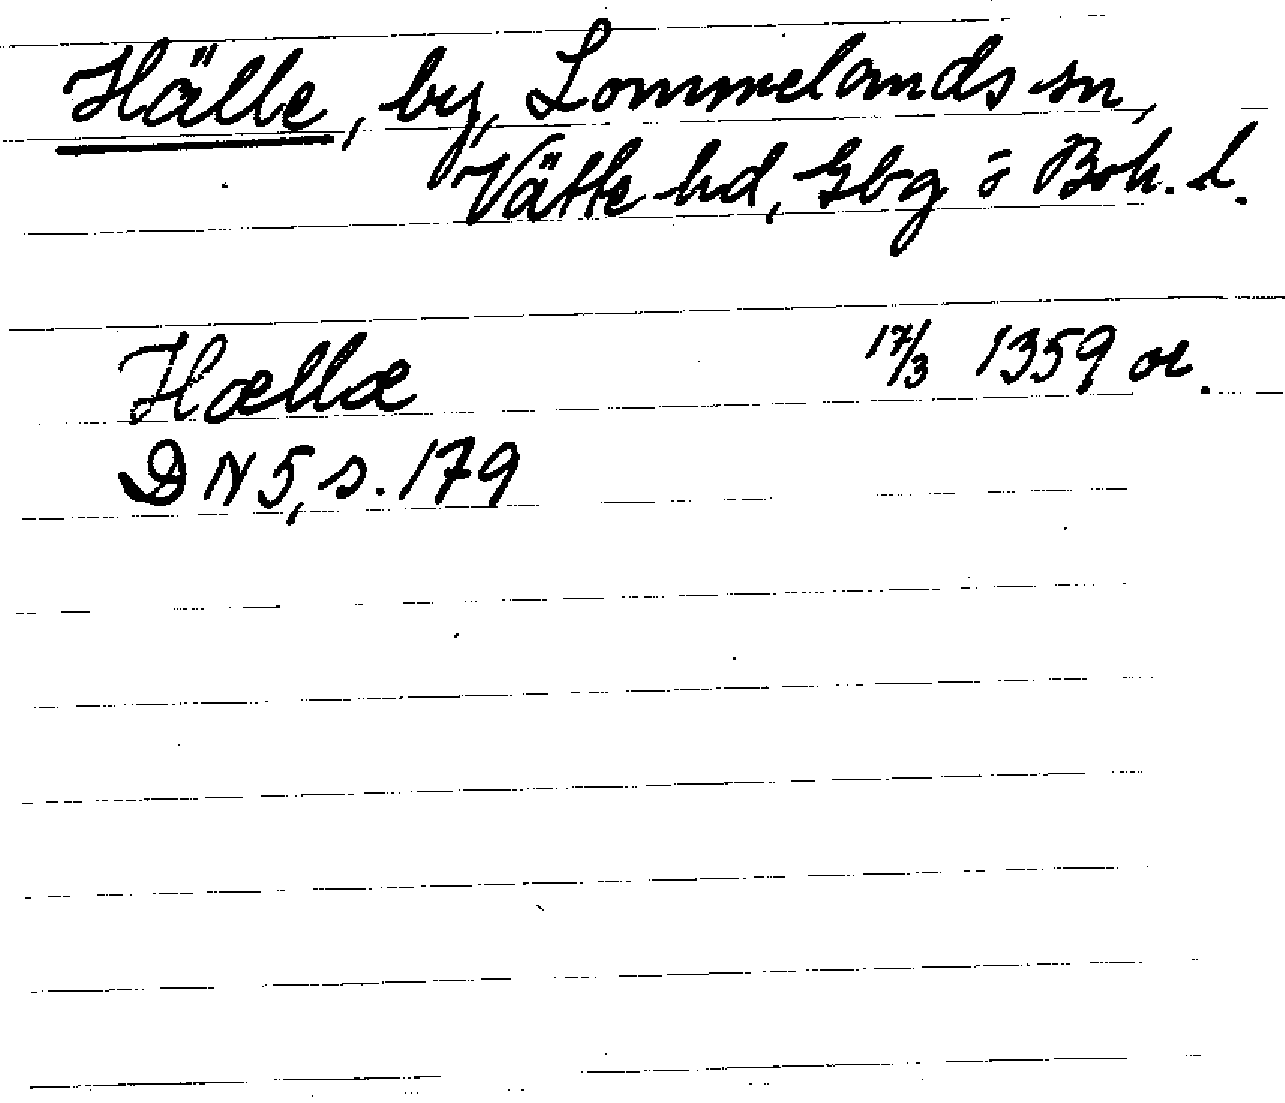 Hälle, by, Lommelands sn,
Vätte hd, Gbg o Boh. l.
Hællæ 17/3 1359 or.
DN 5, s. 179